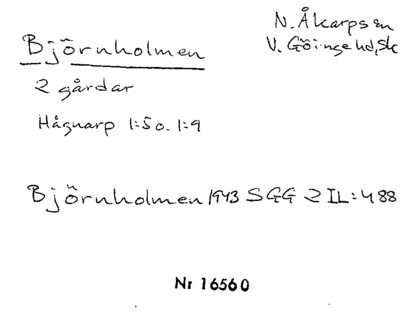 N. Åkarps sn
V. Göinge hd, Sk
Björnholmen
2 gårdar
Hågnarp 1:5 o. 1:9
Björnholmen 1943 SGG 2 IL: 488
Nr 16560